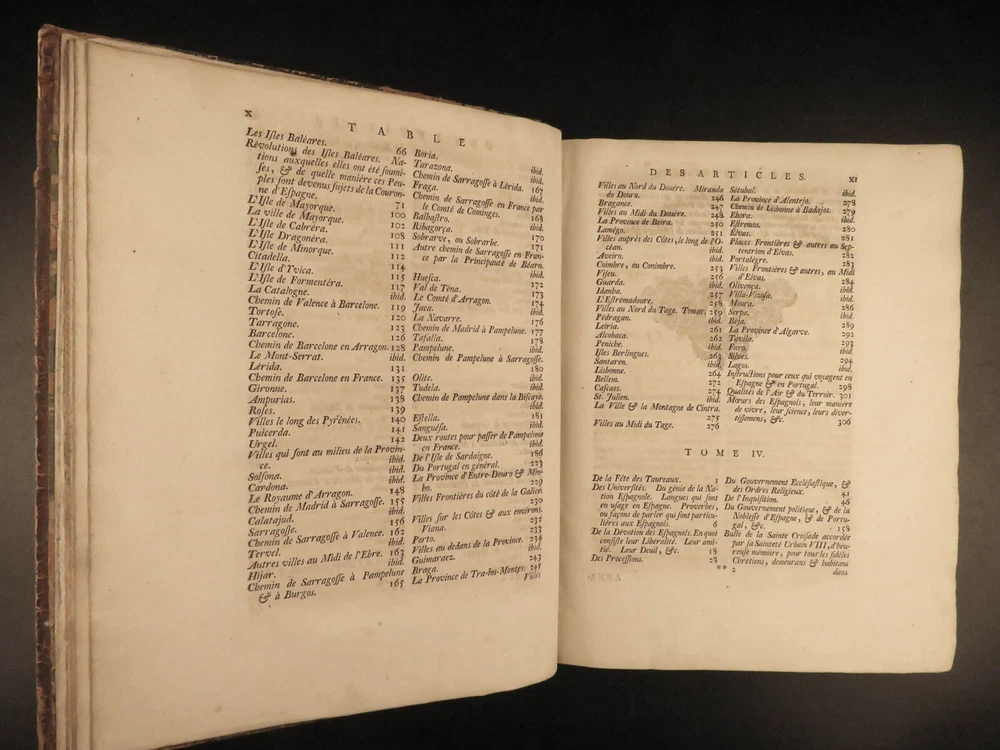 x
TABLE
Les Iſles Baléares. 66
Révolutions des Iſles Baléares. Na-
tions auxquelles elles ont été ſoumi-
ſes, & de quelle manière ces Peu-
ples ſont devenus ſujets de la Couron-
ne d'Eſpagne. 71
L'Iſle de Mayorque. 100
La ville de Mayorque. 102
L'Iſle de Cabréra. 108
L'Iſle Dragonéra. 111
L'Iſle de Minorque. 112
Citadella. 114
L'Iſle d'Yvica. 115
L'Iſle de Formentéra. 117
La Catalogne. ibid.
Chemin de Valence à Barcelone. 119
Tortoſe. 120
Tarragone. 123
Barcelone. 126
Chemin de Barcelone en Arragon. 128
Le Mont-Serrat. ibid.
Lérida. 131
Chemin de Barcelone en France. 135
Gironne. 137
Ampurias. 138
Roſes. 139
Villes le long des Pyrénées. 140
Puicerda. 141
Urgel. 142
Villes qui ſont au milieu de la Provin-
ce. ibid.
Solſona. ibid.
Cardona. ibid.
Le Royaume d'Arragon. 148
Chemin de Madrid à Sarragoſſe. 155
Calatajud. 156
Sarragoſſe. ibid.
Chemin de Sarragoſſe à Valence. 162
Tervel. ibid.
Autres villes au Midi de l'Ebre. 163
Hijar. ibid.
Chemin de Sarragoſſe à Pampelune
& à Burgos. 165
Boria. ibid.
Tarazona. ibid.
Chemin de Sarragoſſe à Lérida. 167
Fraga. ibid.
Chemin de Sarragoſſe en France par
le Comté de Cominges. 168
Balbaſtro. ibid.
Ribagorça. 170
Sobrarve, ou Sobrarbe. 171
Autre chemin de Sarragoſſe en Fran-
ce par la Principauté de Béarn.
ibid.
Hueſca. 172
Val de Téna. 173
Le Comté d'Arragon. 174
Jaca. ibid.
La Navarre. 176
Chemin de Madrid à Pampelune. 177
Tafalla. 178
Pampelune. ibid.
Chemin de Pampelune à Sarragoſſe.
180
Olite. ibid.
Tudela. ibid.
Chemin de Pampelune dans la Biſcaye.
ibid.
Eſtella. 181
Sanguéſa. ibid.
Deux routes pour paſſer de Pampelune
en France. ibid.
De l'Iſle de Sardaigne. 186
Du Portugal en général. 223
La Province d'Entre-Douro & Min-
ho. 229
Villes Frontières du côté de la Galice.
230
Villes ſur les Côtes & aux environs.
232
Viana. 233
Porto. 234
Villes au dedans de la Province. ibid.
Guimaraez.
Braga. 243
La Province de Tra-los-Montes. 245
Villes
DES ARTICLES.
XI
Villes au Nord du Douère. Miranda
do Douro. 246
Bragance. 247
Villes au Midi du Douère. 248
La Province de Beira. 250
Lamégo. 251
Villes auprès des Côtes, le long de l'O-
céan. ibid.
Aveiro. ibid.
Coimbre, ou Conimbre. 253
Viſeu. 256
Guarda. ibid.
Idanba. 257
L'Eſtrémadoure. 258
Villes au Nord du Tage. Tomar, 259
Pédragan. ibid.
Leiria. 261
Alcobaca. 262
Peniche. ibid.
Iſles Berlingues. 263
Santaren. ibid.
Lisbonne. 264
Bellem. 272
Caſcaes. 274
St. Julien. ibid.
La Ville & la Montagne de Cintra.
275
Villes au Midi du Tage. 276
Sétubal. ibid.
La Province d'Alentejo. 278
Chemin de Lisbonne à Badajos. 279
Ebora. ibid.
Eſtremos. 280
Elvas. 281
Places Frontières & autres au Sep-
tentrion d'Elvas. 282
Portalégre. 283
Villes Frontières & autres, au Midi
d'Elvas. 284
Olivença. ibid.
Villa-Vizoſa. ibid.
Moura. 286
Serpa. ibid.
Béja. 289
La Province d'Algarve. 292
Tavila. 293
Faro. ibid.
Silves. 294
Lagos. ibid.
Inſtructions pour ceux qui voyagent en
Eſpagne & en Portugal. 298
Qualités de l'Air & du Terroir. 301
Mœurs des Eſpagnols, leur manière
de vivre, leur ſcience, leurs diver-
tiſſemens, &c. 306
TOME IV.
De la Fête des Taureaux. 1
Des Univerſités. Du génie de la Na-
tion Eſpagnole. Langues qui ſont
en uſage en Eſpagne. Proverbes,
ou façons de parler qui ſont particu-
lières aux Eſpagnols. 6
De la Dévotion des Eſpagnols. En quoi
conſiſte leur Libéralité. Leur ami-
tié. Leur Deuil, &c. 18
Des Proceſſions. 28
Du Gouvernement Eccléſiaſtique, &
des Ordres Religieux. 41
De l'Inquiſition. 46
Du Gouvernement politique, & de la
Nobleſſe d'Eſpagne, & de Portu-
gal, &c. 158
Bulle de la Sainte Croiſade accordée
par ſa Sainteté Urbain VIII, d'heu-
reuſe mémoire, pour tous les fidèles
Chrétiens, demeurans & habitans
** 2
dans